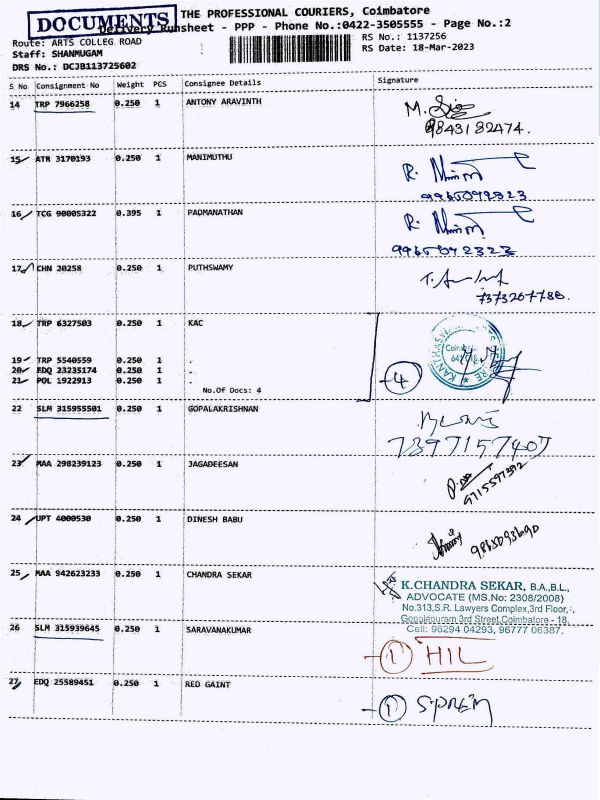 DOCUMENTS
THE PROFESSIONAL COURIERS, Coimbatore
Delivery Runsheet - PPP - Phone No.:0422-3505555 - Page No.:2
Route: ARTS COLLEG ROAD
RS No.: 1137256
Staff: SHANMUGAM
RS Date: 18-Mar-2023
DRS No.: DCJB113725602
S No Consignment No Weight PCS Consignee Details Signature
14 TRP 7966258 0.250 1 ANTONY ARAVINTH
9843182474.
15 ATR 3170193 0.250 1 MANIMUTHU
16 TCG 90005322 0.395 1 PADMANATHAN
17 CHN 20258 0.250 1 PUTHSWAMY
7373207788.
18 TRP 6327503 0.250 1 KAC
19 TRP 5540559 0.250 1 .
20 EDQ 23235174 0.250 1 .
21 POL 1922913 0.250 1 .
-4
No.Of Docs: 4
22 SLM 315955501 0.250 1 GOPALAKRISHNAN
7397157407
23 MAA 298239123 0.250 1 JAGADEESAN
9715597392
24 UPT 4000530 0.250 1 DINESH BABU
9865093690
25 MAA 942623233 0.250 1 CHANDRA SEKAR
K.CHANDRA SEKAR, B.A.,B.L.,
ADVOCATE (MS.No: 2308/2008)
No.313,S.R. Lawyers Complex,3rd Floor,
Gopalapuram 3rd Street,Coimbatore - 18.
Cell: 96294 04293, 96777 06387.
26 SLM 315939645 0.250 1 SARAVANAKUMAR
-1 HIL
27 EDQ 25589451 0.250 1 RED GAINT
-1